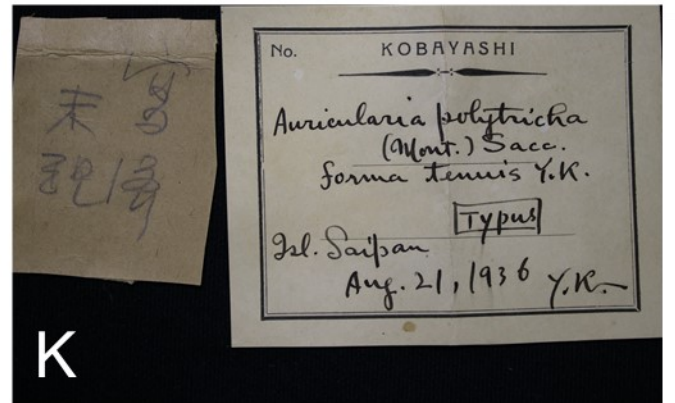 No. KOBAYASHI
Auricularia polytricha
(Mont.) Sacc.
forma tenuis Y.K.
Typus
Isl. Saipan
Aug. 21, 1936 Y.K.
K